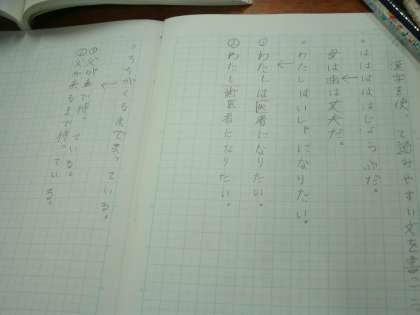 漢字を使って読みやすい文を書こう
・はははははじょうぶだ。
母は歯は丈夫だ。
・わたしはいしゃになりたい。
①わたしは医者になりたい。
②わたし歯医者になりたい。
・ちちがくるまでまっている。
①父が車で待っている。
②父が来るまで待っている。